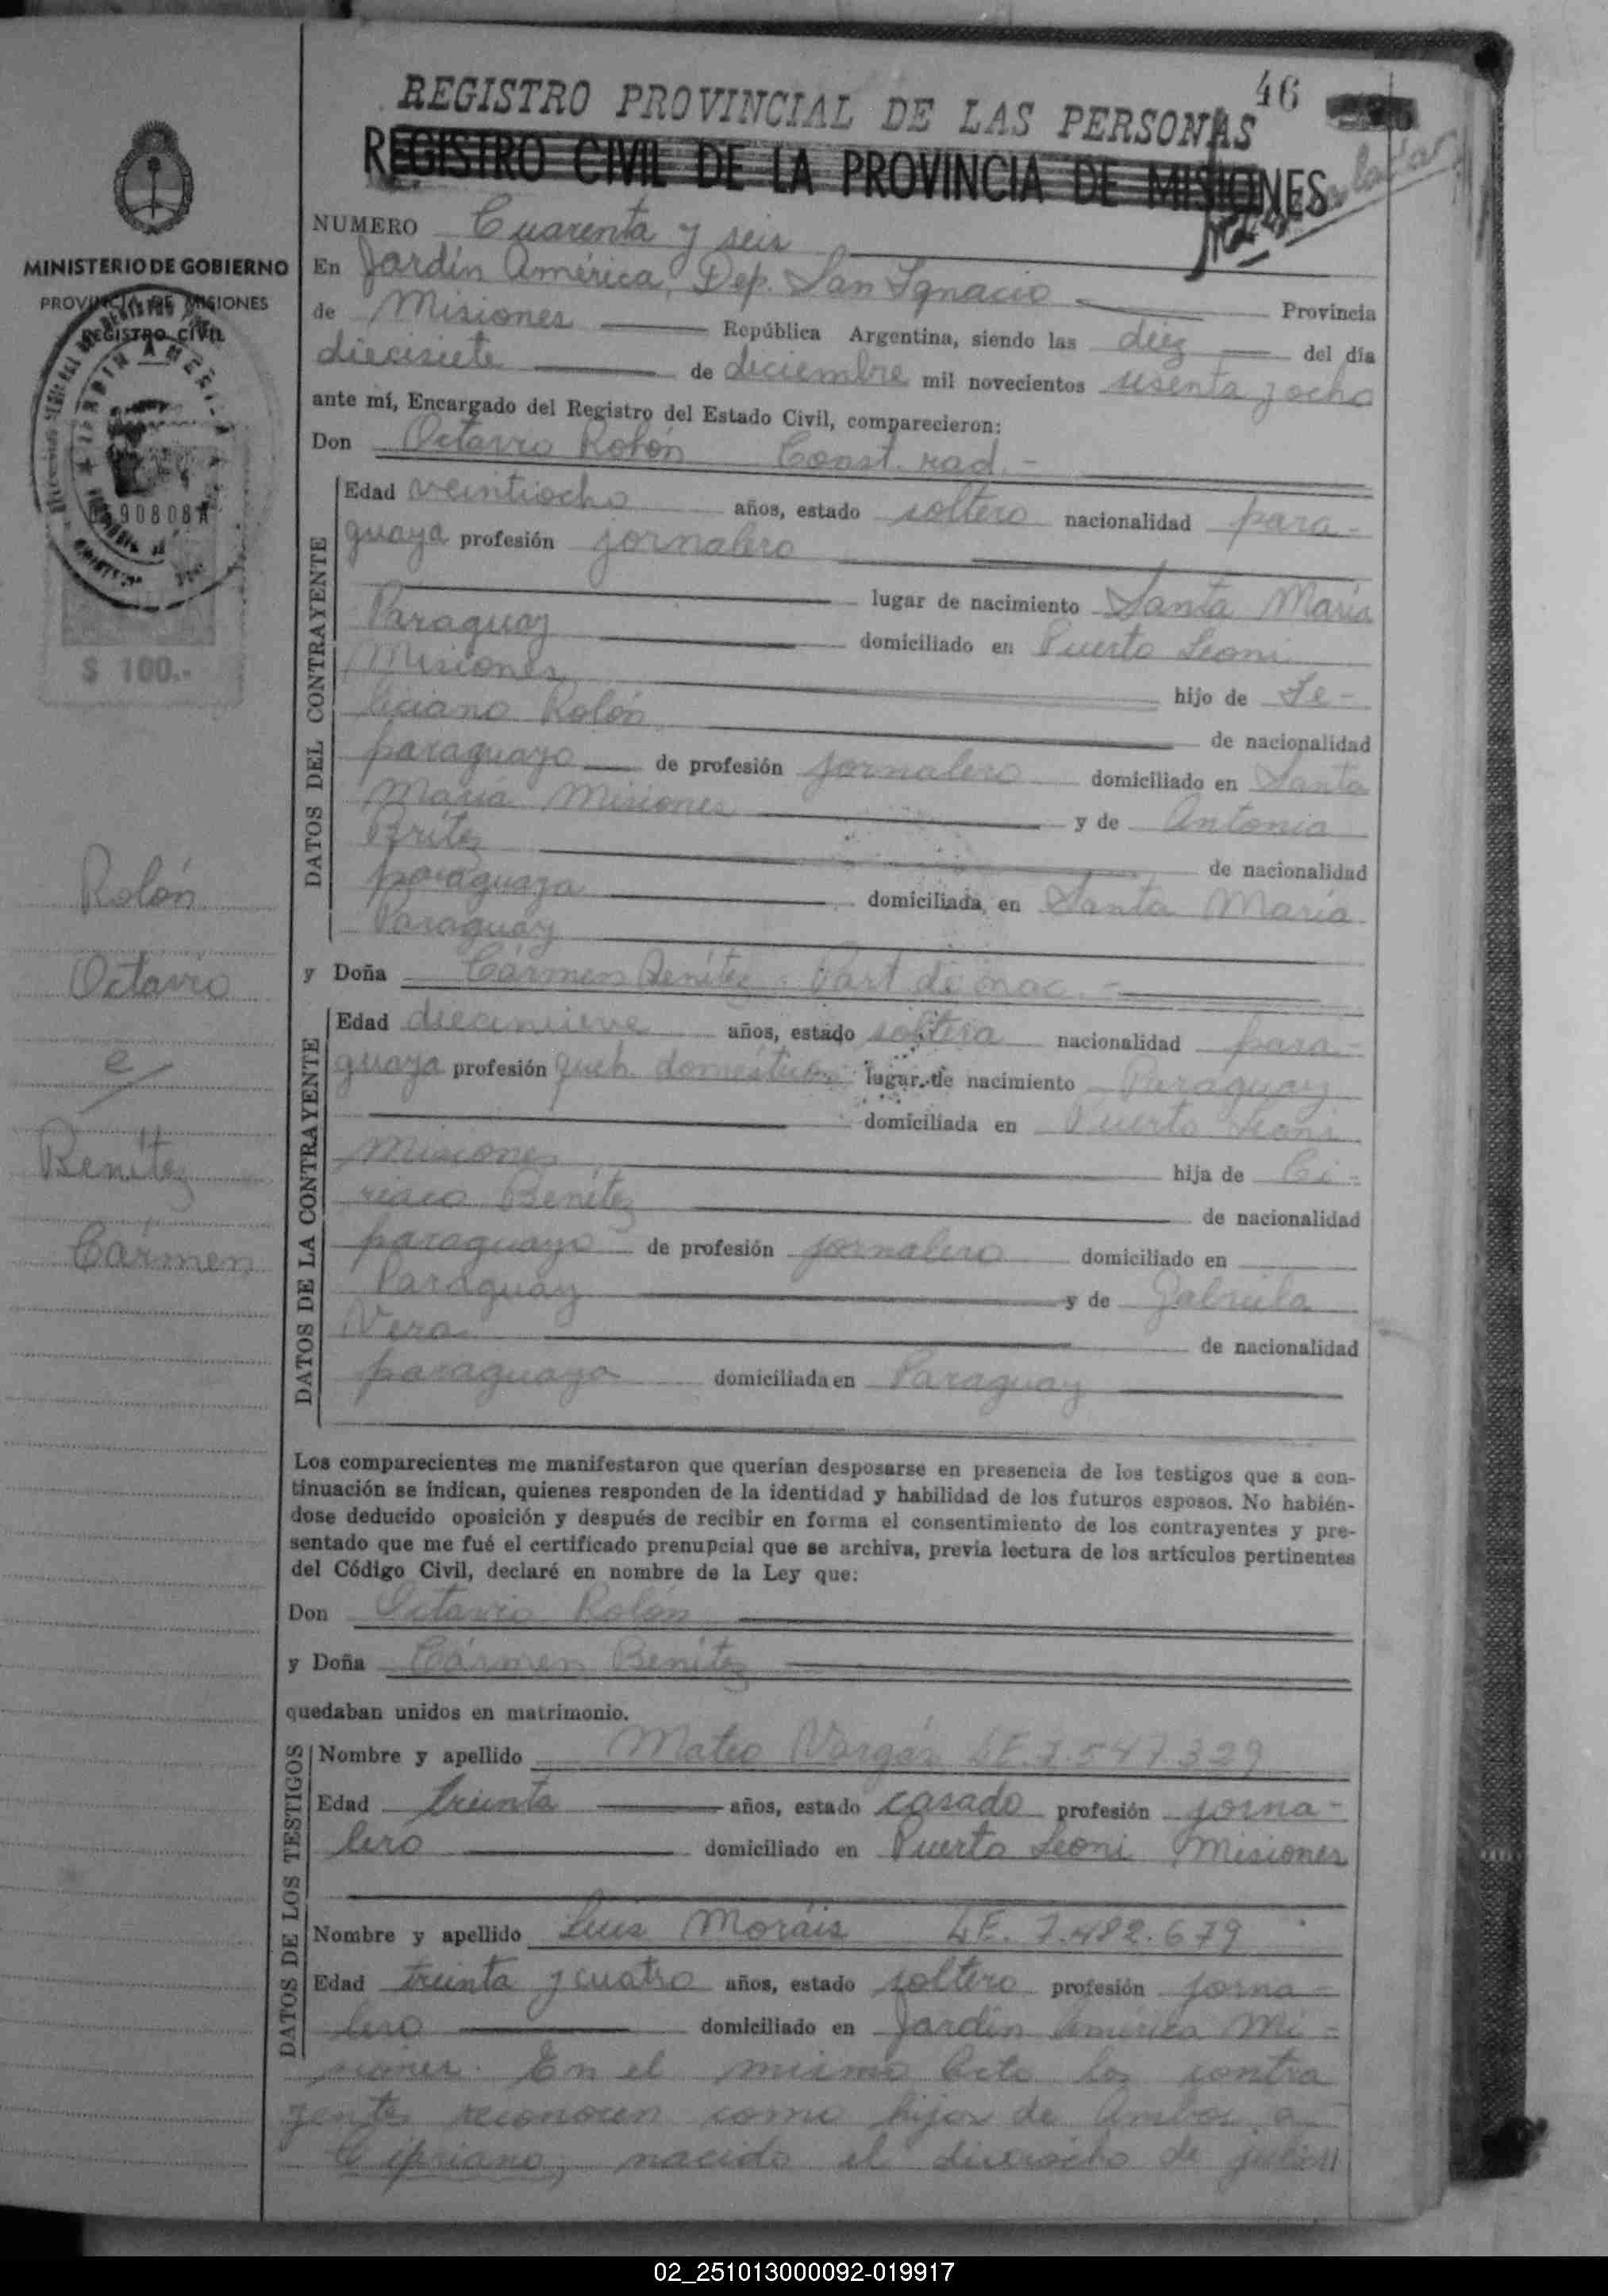 46
REGISTRO PROVINCIAL DE LAS PERSONAS
REGISTRO CIVIL DE LA PROVINCIA DE MISIONES
MINISTERIO DE GOBIERNO
PROVINCIA DE MISIONES
REGISTRO CIVIL
90808
$ 100.-
Rolón
Octavio
e/
Benítez
Cármen
NUMERO Cuarenta y seis
En Jardín América, Dep. San Ignacio Provincia
de Misiones República Argentina, siendo las diez del día
diecisiete de diciembre mil novecientos sesenta y ocho
ante mí, Encargado del Registro del Estado Civil, comparecieron:
Don Octavio Rolón Const. rad.-
DATOS DEL CONTRAYENTE
Edad veintiocho años, estado soltero nacionalidad para-
guaya profesión jornalero
lugar de nacimiento Santa María
Paraguay domiciliado en Puerto Leoni
Misiones hijo de Fe-
liciano Rolón de nacionalidad
paraguayo de profesión jornalero domiciliado en Santa
María Misiones y de Antonia
Brítez de nacionalidad
paraguaya domiciliada en Santa María
Paraguay
y Doña Cármen Benítez Part. de nac.-
DATOS DE LA CONTRAYENTE
Edad diecinueve años, estado soltera nacionalidad para-
guaya profesión queh. domésticos lugar de nacimiento Paraguay
domiciliada en Puerto Leoni
Misiones hija de Ci-
riaco Benítez de nacionalidad
paraguayo de profesión jornalero domiciliado en
Paraguay y de Gabriela
Vera de nacionalidad
paraguaya domiciliada en Paraguay
Los comparecientes me manifestaron que querían desposarse en presencia de los testigos que a con-
tinuación se indican, quienes responden de la identidad y habilidad de los futuros esposos. No habién-
dose deducido oposición y después de recibir en forma el consentimiento de los contrayentes y pre-
sentado que me fué el certificado prenupcial que se archiva, previa lectura de los artículos pertinentes
del Código Civil, declaré en nombre de la Ley que:
Don Octavio Rolón
y Doña Cármen Benítez
quedaban unidos en matrimonio.
DATOS DE LOS TESTIGOS
Nombre y apellido Mateo Vargás LE. 7.547.329
Edad treinta años, estado casado profesión jorna-
lero domiciliado en Puerto Leoni Misiones
Nombre y apellido Luis Moráis LE. 7.482.679
Edad treinta y cuatro años, estado soltero profesión jorna-
lero domiciliado en Jardín América Mi-
siones. En el mismo Acto los contra
yentes reconocen como hijos de Ambos a
Cipriano, nacido el dieciocho de julio
02_251013000092-019917